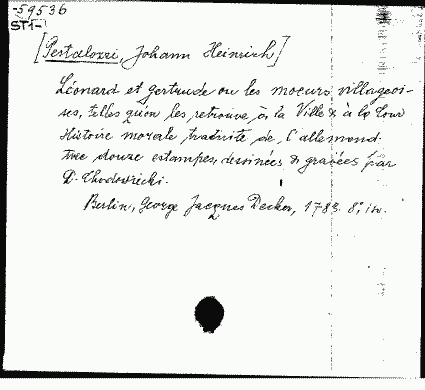 -59536
ST1-
[Pestalozzi, Johann Heinrich]
Léonard et gertrude ou les moeurs villageoi-
ses, telles qu'on les retrouve à la Ville & à la Cour
Histoire morale traduite de l'allemand.
avec douze estampes, dessinées & gravées par
D. Chodowiecki.
Berlin, George Jacques Decker, 1783. 8°,